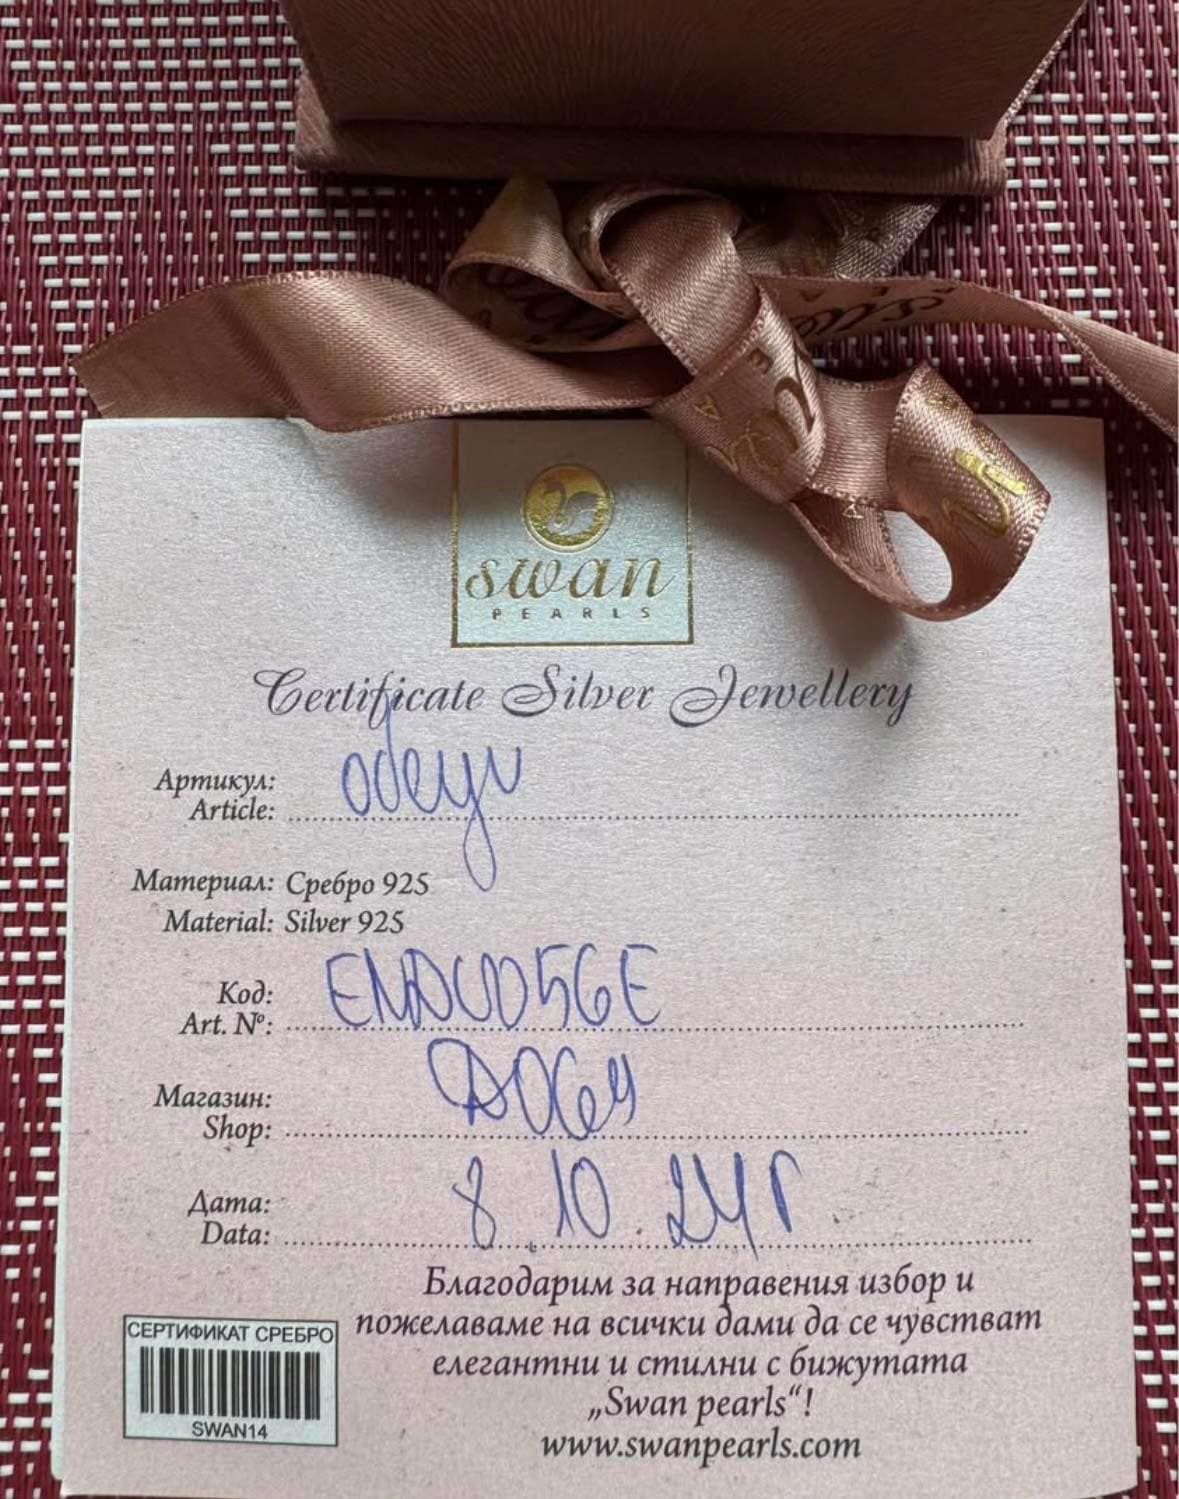 swan
PEARLS
Certificate Silver Jewellery
Артикул: обеци
Article:
Материал: Сребро 925
Material: Silver 925
Код:
Art. Nº:
Магазин:
Shop:
Дата: 8.10.24г
Data:
Благодарим за направения избор и
пожелаваме на всички дами да се чувстват
елегантни и стилни с бижутата
„Swan pearls“!
www.swanpearls.com
СЕРТИФИКАТ СРЕБРО
SWAN14